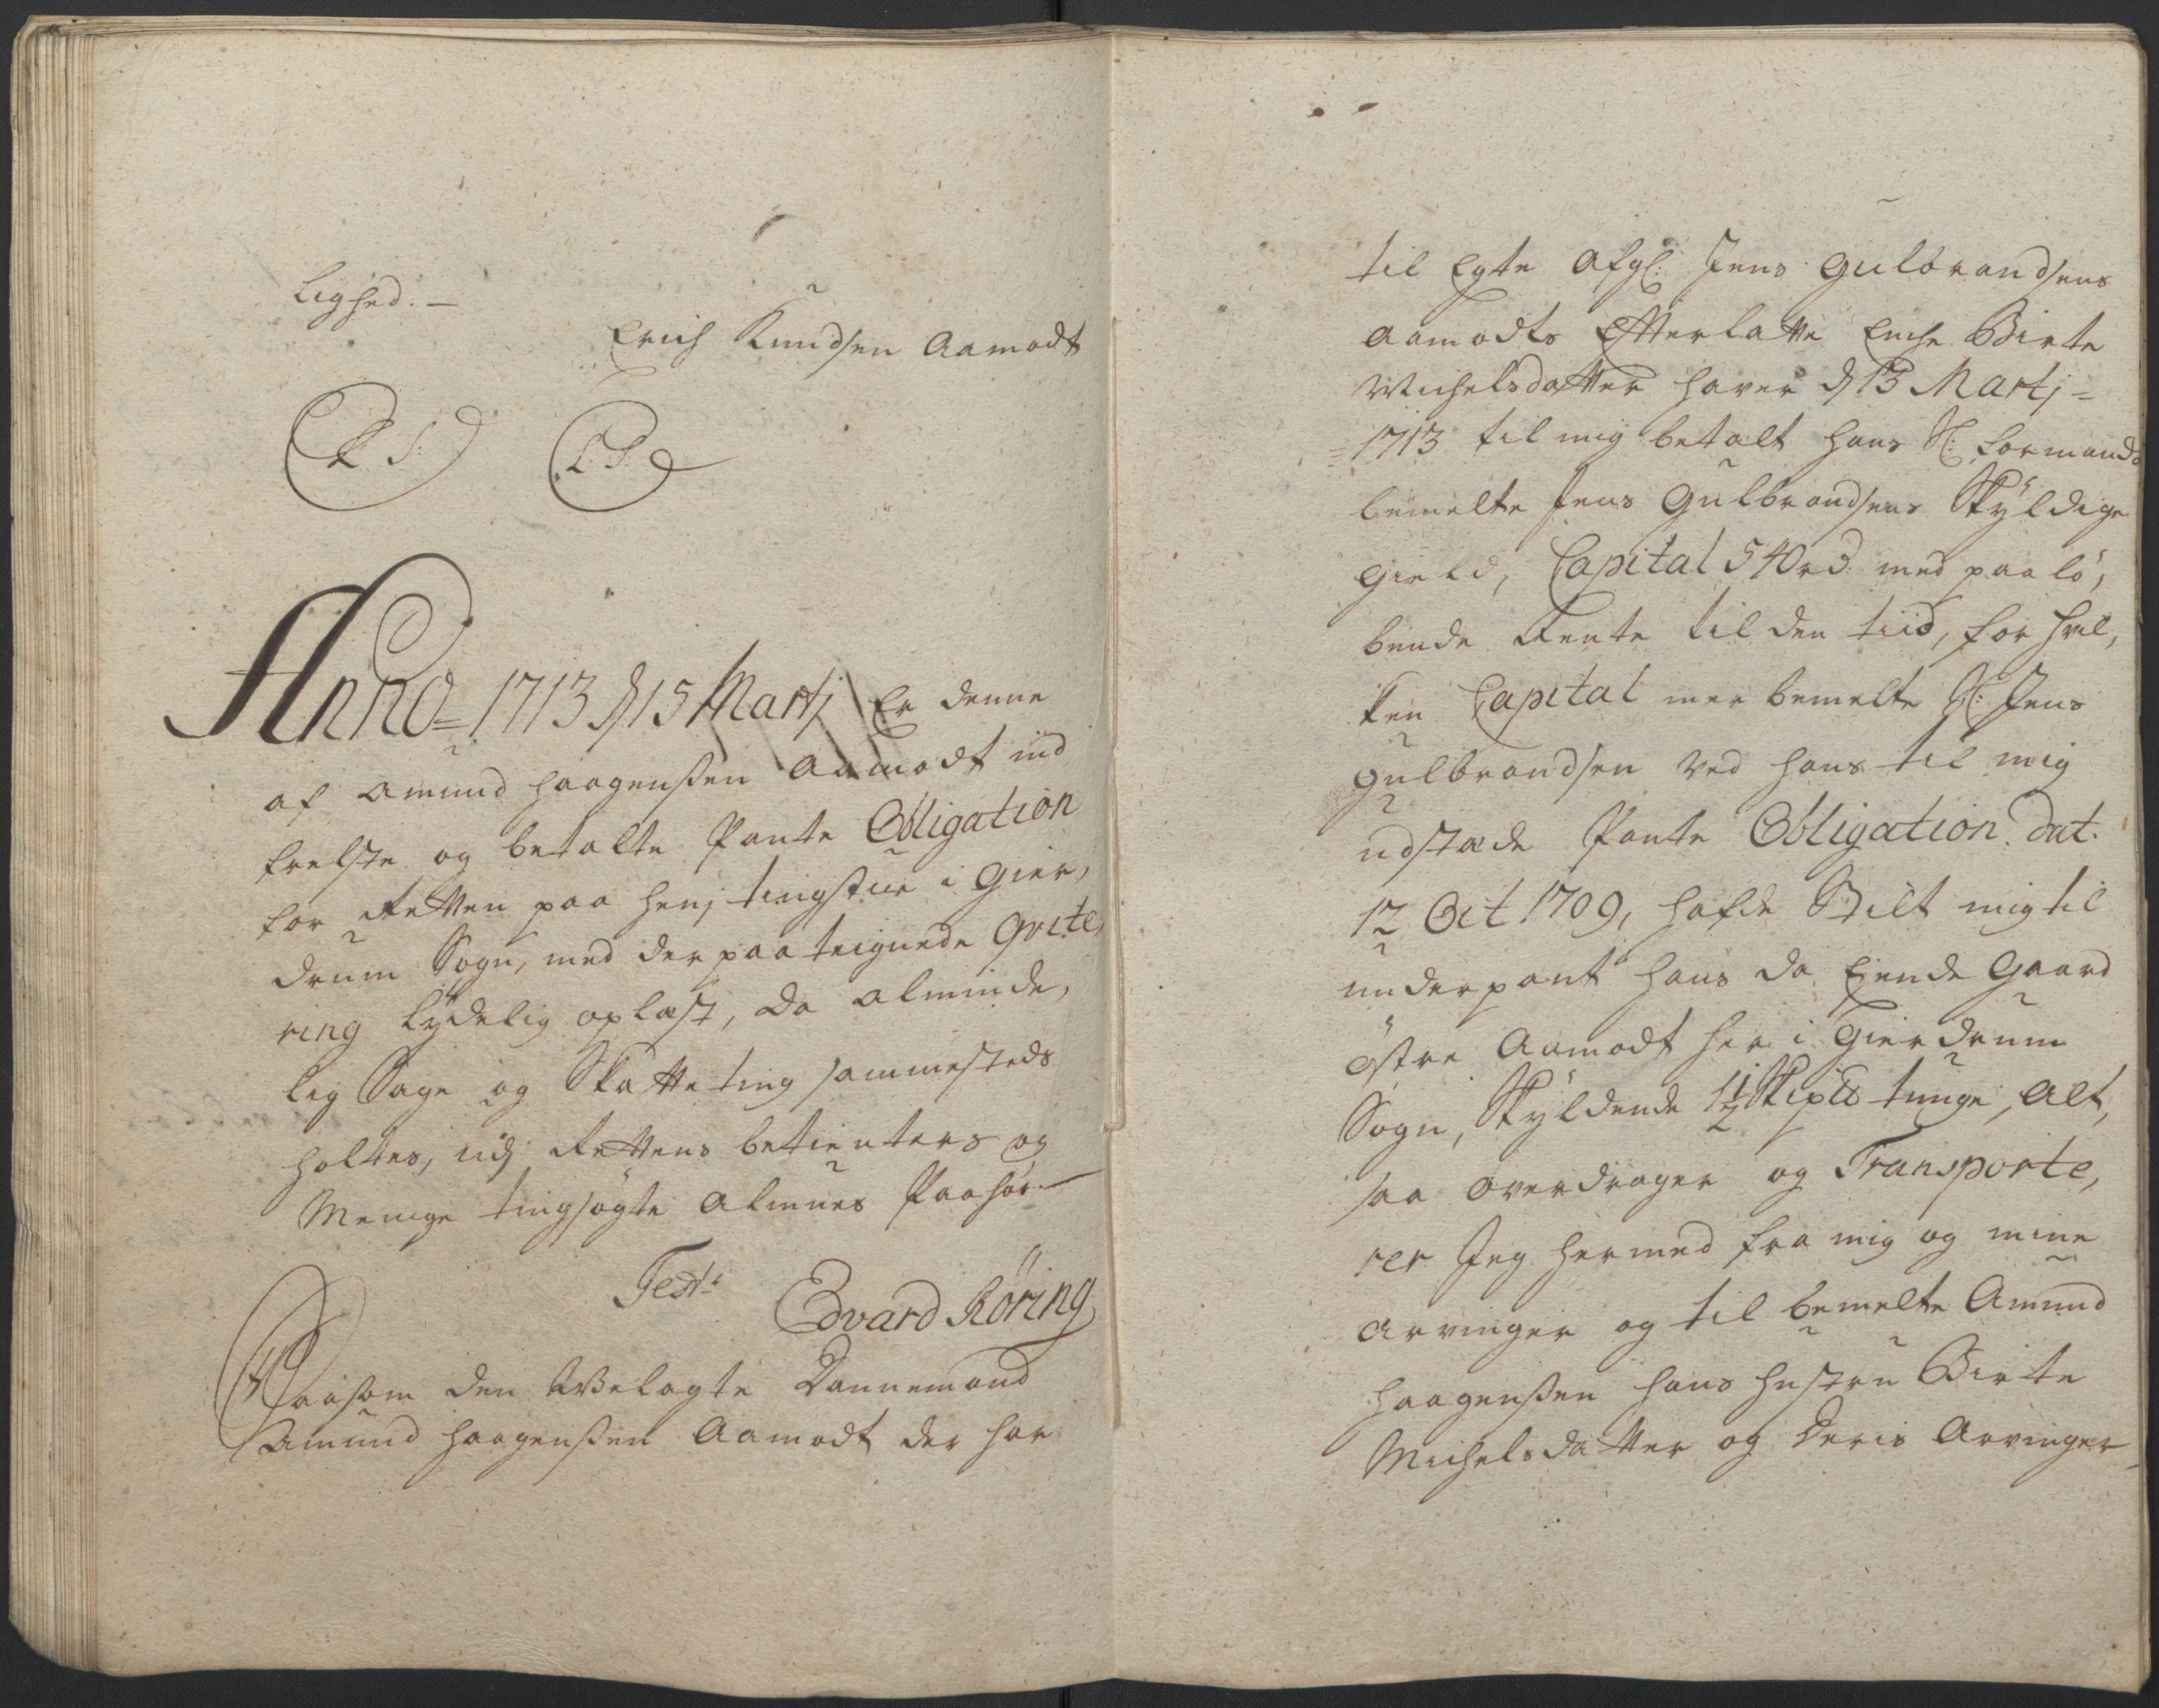 lighed. –
Erich Knudsen Aamodt
L S: L S:
Anno = 1713 d 15 Martj Er denne
af Amund Haagenssen Aamodt ind
frelste og betalte Pante Obligation
for Retten paa Henj tingstue i Gier,
drum Sogn, med der paa teignede Qvite,
ring lydelig oplæst, da alminde,
lig Sage og Skatte ting sammesteds
holtes, udj Rettens betienters og
Menige tingsøgte Almues Paahør. –
Test:
Edvard Röring
Saasom den Welagte Dannemand
Amund Haagenssen Aamodt der har
til Egte Afgl: Jens Gulbrandsens
Aamodts Efterlatte Enche Birte
Michelsdatter haver d 13 Martj =
= 1713 til mig betalt hans Sl: formands
bemelte Jens Gulbrandsens Skyldige
Gield, Capital 540 rd: med paa lö,
bende Rente til den tiid, for hvil,
ken Capital mer bemelte Sl: Jens
Gulbrandsen ved hans til mig
udstæde Pante Obligation dat.
12 Oct 1709, hafde Stilt mig til
underpant hans da Ejende Gaard
östre Aamodt her i Gierdrum
Sogn, Skyldende 1 1/2 Skipd tunge, Alt,
saa overdrager og Transporte,
rer Jeg hermed fra mig og mine
Arvinger og til bemelte Amund
Haagenssen hans hustru Birte
Michelsdatter og deris Arvinger